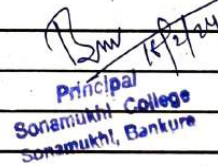 15/2/24
Principal
Sonamukhi College
Sonamukhi, Bankura